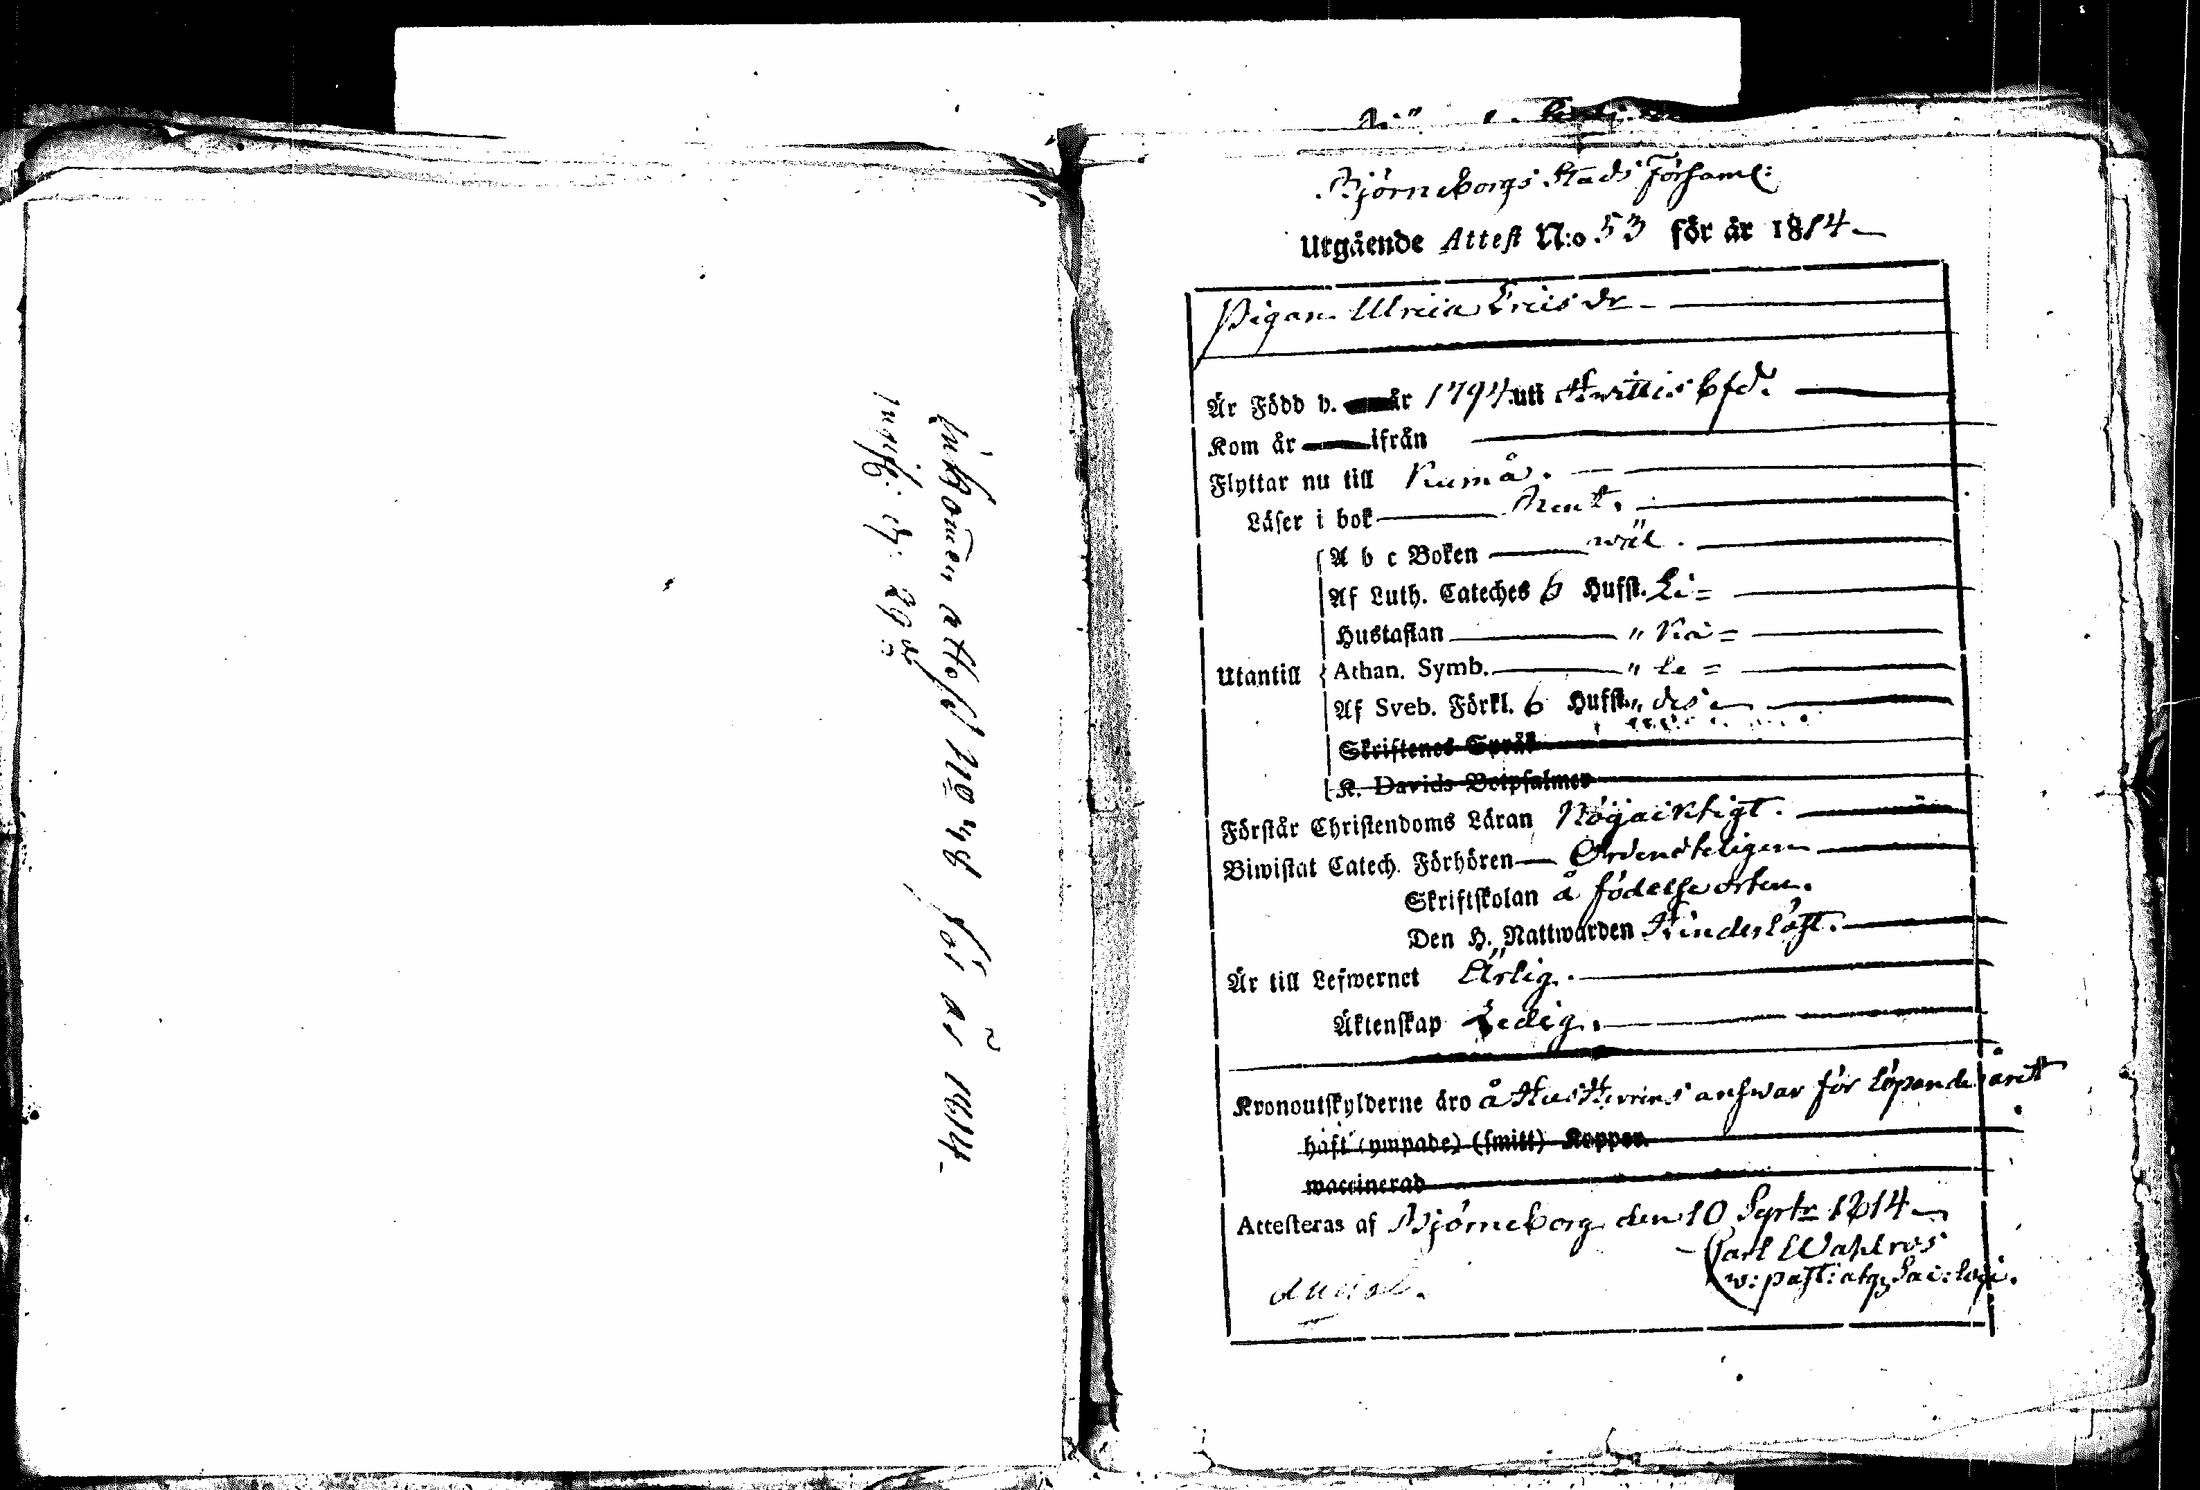 Inkom̅en attest No 48 för år 1814
Björneborgs Stads Församl:
Utgående Attest N:o 53 för år 1814
Pigan Ulrica Ericsdr
Är Född d. år 1794 uti Hwittis Cfd.
Kom år ifrån
Flyttar nu till Kumå.
Läser i bok Rent.
A b c Boken wäl.
Af Luth. Cateches 6 Hufst. Li=
Hustaflan " ka=
Utantill Athan. Symb. " le=
Af Sveb. Förkl. 6 Hufst. " des
Skriftenes Språk
K. Davids Botpsalmer
Förstår Christendoms Läran Nöjacktigt.
Biwistat Catech. Förhören Ordenteligen
Skriftskolan å födelse orten.
Den H. Nattwarden
Är till Lefwernet Ärlig.
Äktenskap Ledig.
Kronoutskylderne äro å Hus Herrens answar för löpande året
haft (ympade) (smitt) Koppor
waccinerad
Attesteras af Björneborg den 10 Septr 1814
Carl Wahlros
w: past: atq Sac: